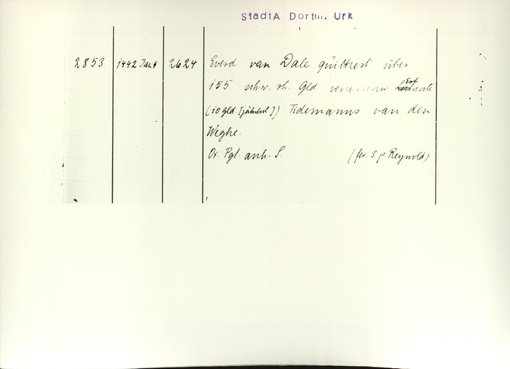 StadtA Dortm. Urk
2853 1442 Jan 4 2624 Everd van Dale quittiert über
155 schw. rh. Gld
(10 Gld [jährl.]) Tidemanns van den
Weghe.
Or. Pgt. anh. S. (fer. 5. p Reynold)